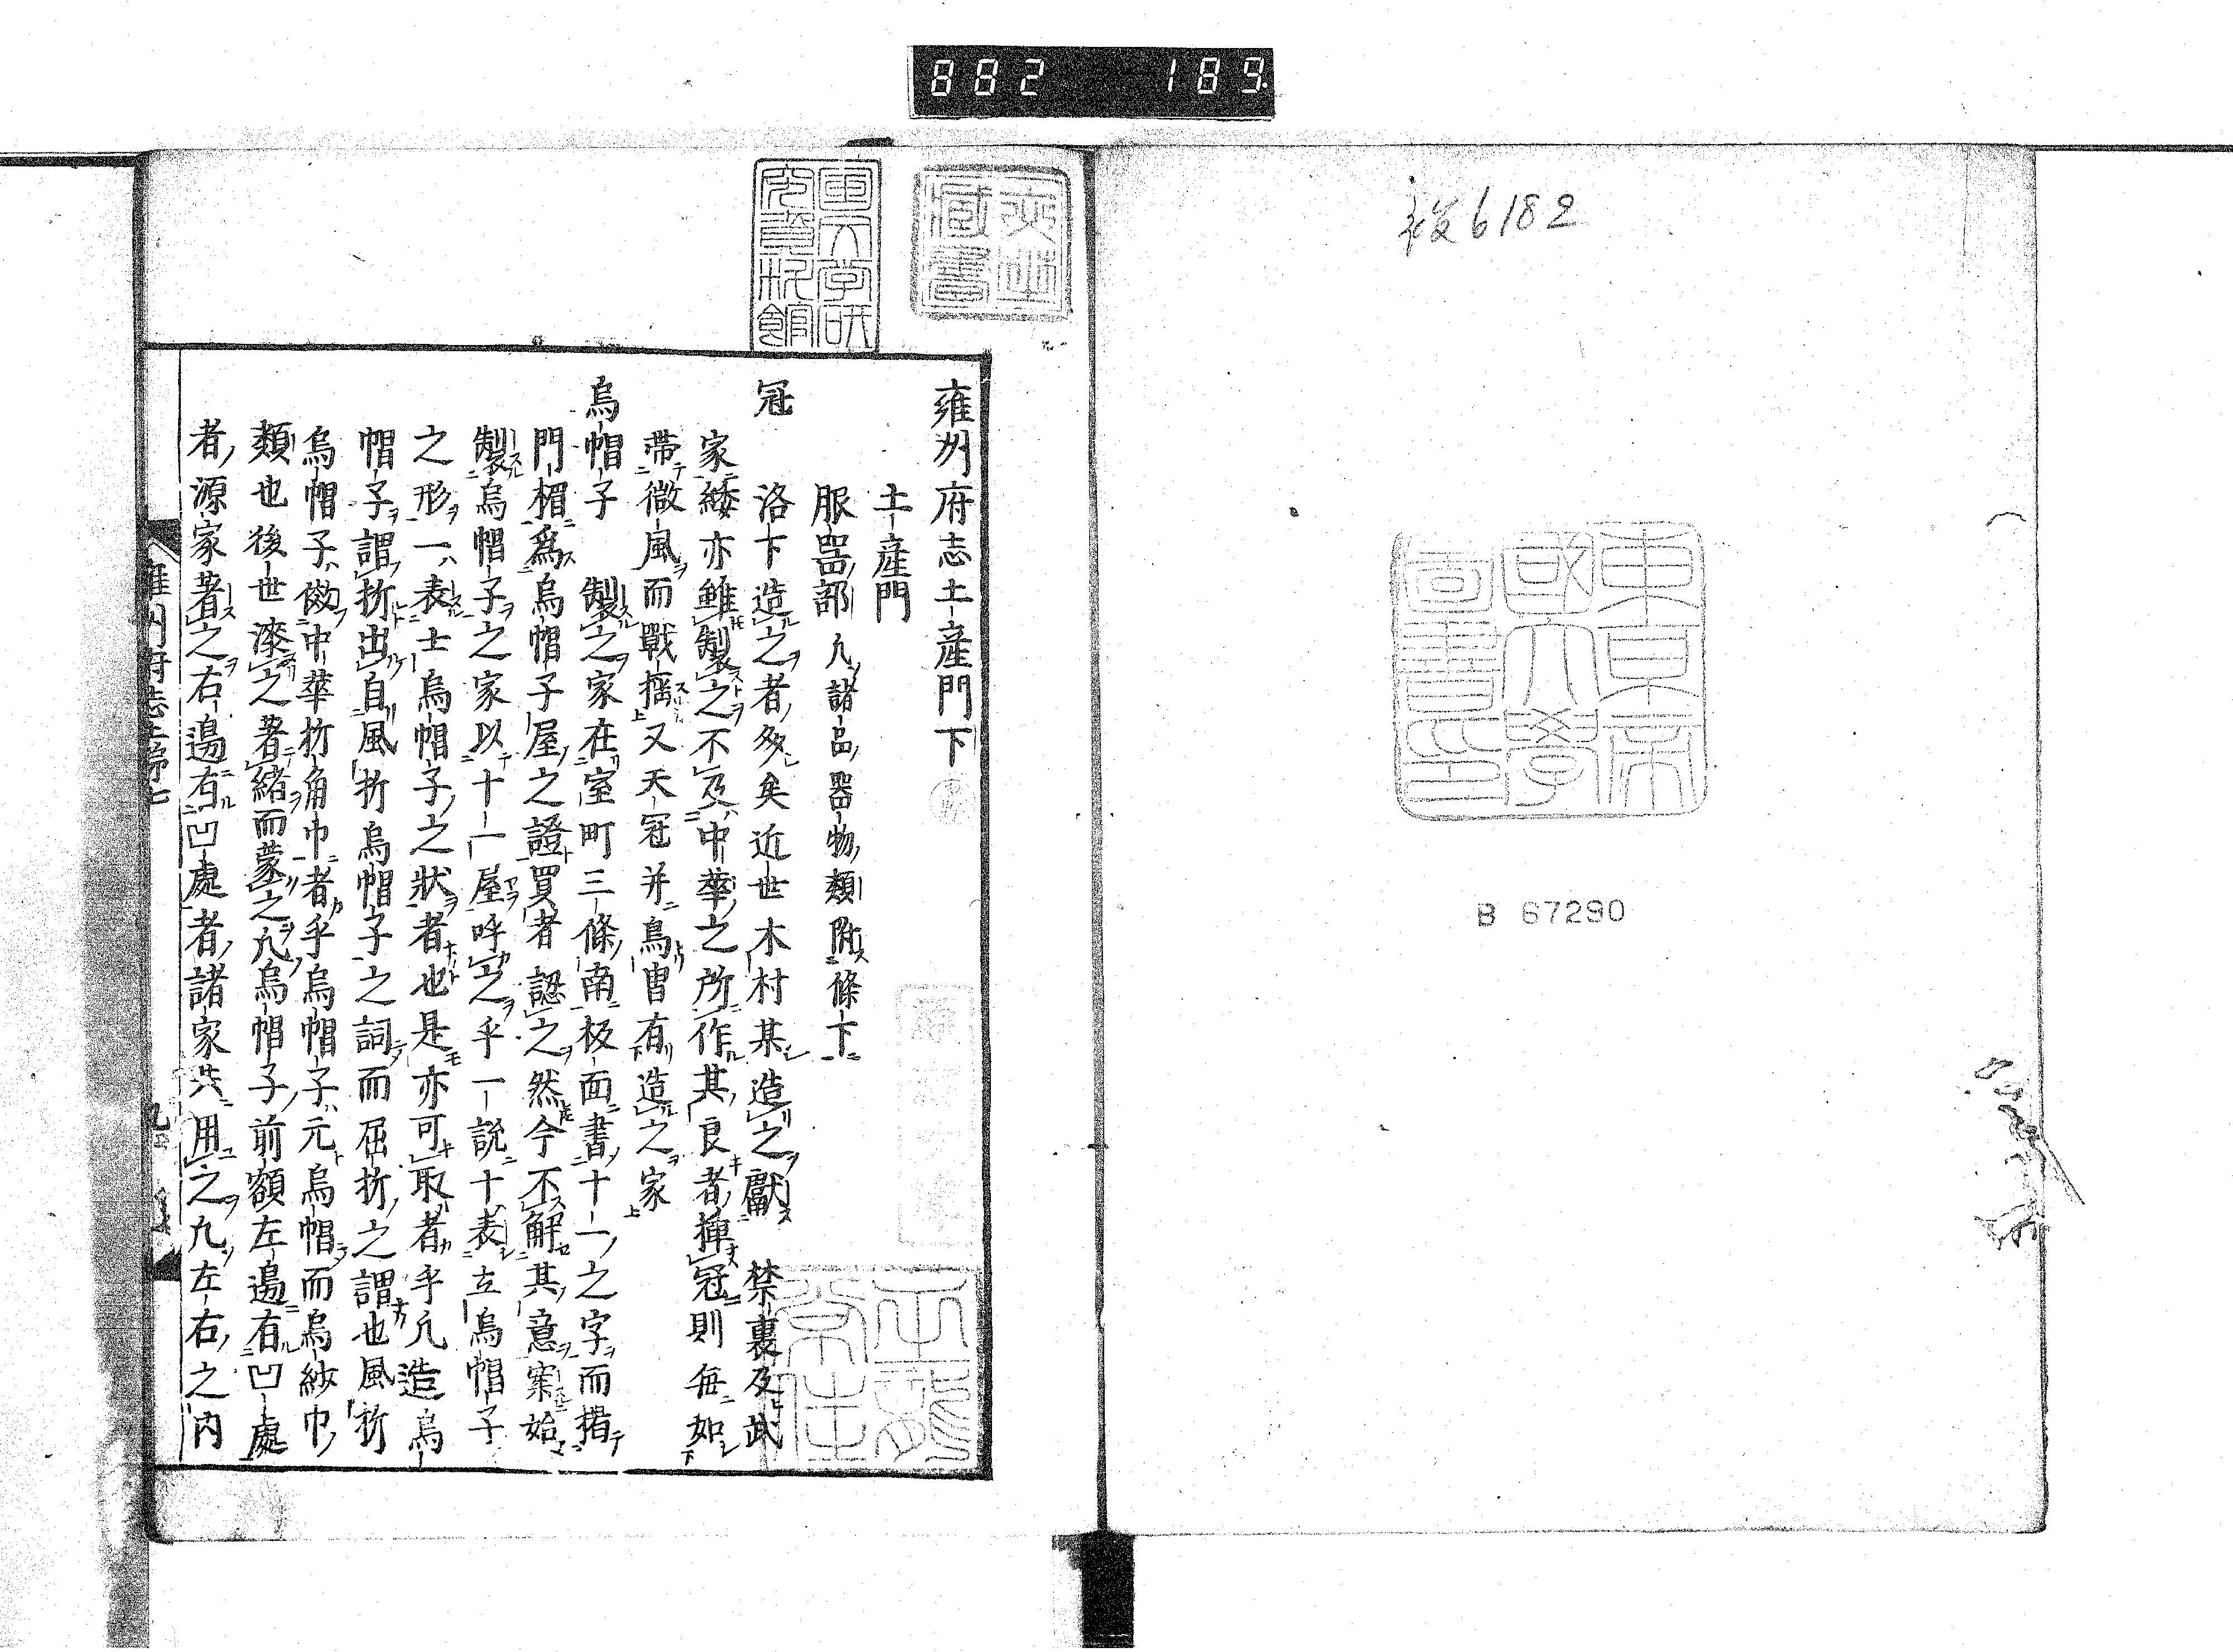 882 189
6182
東京帝
国大學
圖書印
B 67290
雍州府志土産門下
土産門
服器部 凢諸品器物類附條下
冠
洛下造之者多矣近世木村某造之獻 禁裏及武
家緌亦雖製之不及中華之所作其良者揷冠則毎如
帶微風而戰揺又天冠并鳥曺有造之家
烏帽子 製之家在室町三條南板面書十一之字而掲
門楣爲烏帽子屋之證買者認之然今不解其意案始
製烏帽子之家以十一屋呼之乎一説十表立烏帽子
之形一表士烏帽子之狀者也是亦可取者乎凢造烏
帽子謂折出自風折烏帽子之詞而屈折之謂也風折
烏帽子傚中華折角巾者乎烏帽子元烏帽而烏紗巾
類也後世漆之著緒而蒙之凢烏帽子前額左邉有凹處
者源家著之右邉有凹處者諸家共用之凢左右之内
雍州府志土第七